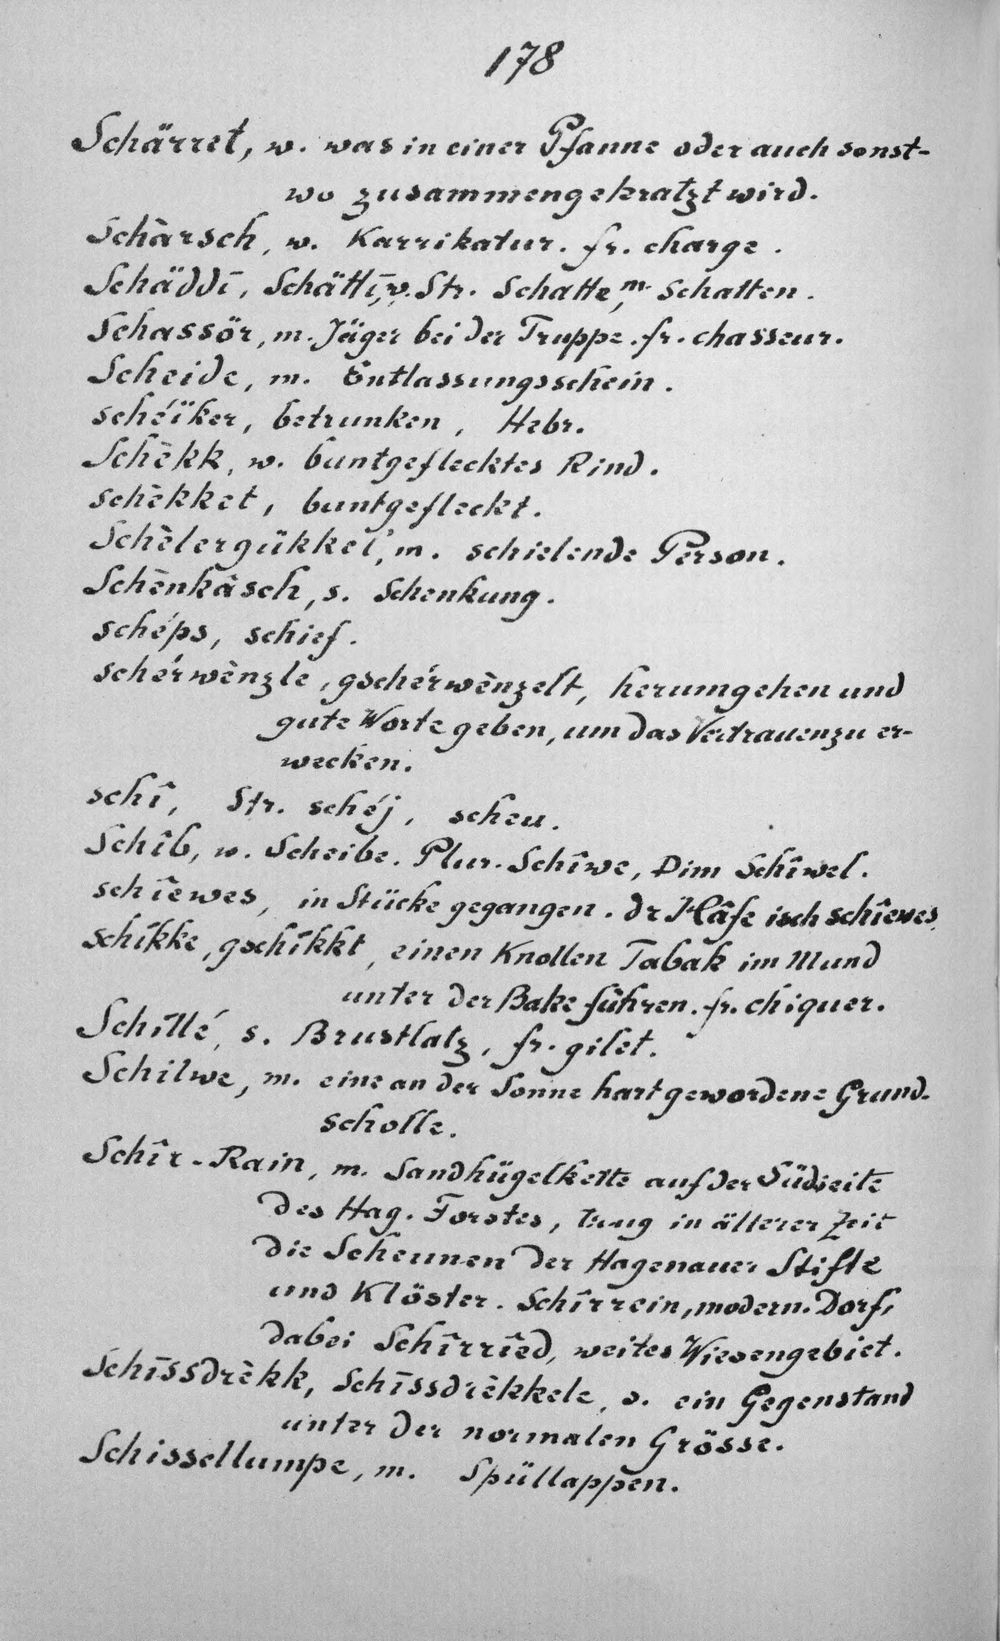 178
Schärret, w. was in einer Pfanne oder auch sonst-
wo zusammengekratzt wird.
Schàrsch, w. Karrikatur. fr. charge.
Schäddi, Schätti, w. Str. Schatte, m. Schatten.
Schassör, m. Jäger bei der Truppe. fr. chasseur.
Scheide, m. Entlassungsschein.
schéïker, betrunken, Hebr.
Schèkk, w. buntgeflecktes Rind.
schèkket, buntgefleckt.
Schèlergükkel, m. schielende Person.
Schènkàsch, s. Schenkung.
schéps, schief.
schérwènzle, gschérwènzelt, herumgehen und
gute Worte geben, um das Vertrauen zu er-
wecken.
schî, Str. schéj, scheu.
Schîb, w. Scheibe. Plur. Schîwe, Dim Schîwel.
schîewes, in Stücke gegangen. dr Hâfe isch schîewes.
schikke, gschikkt, einen Knollen Tabak im Mund
unter der Bake führen. fr. chiquer.
Schillé, s. Brustlatz, fr. gilet.
Schilwe, m. eine an der Sonne hart gewordene Grund-
scholle.
Schîr-Rain, m. Sandhügelkette auf der Südseite
des Hag. Forstes, trug in älterer Zeit
die Scheunen der Hagenauer Stifte
und Klöster. Schîrrein, modern. Dorf,
dabei Schîrrîed, weites Wiesengebiet.
Schissdrèkk, Schissdrèkkele, s. ein Gegenstand
unter der normalen Grösse.
Schissellumpe, m. Spüllappen.